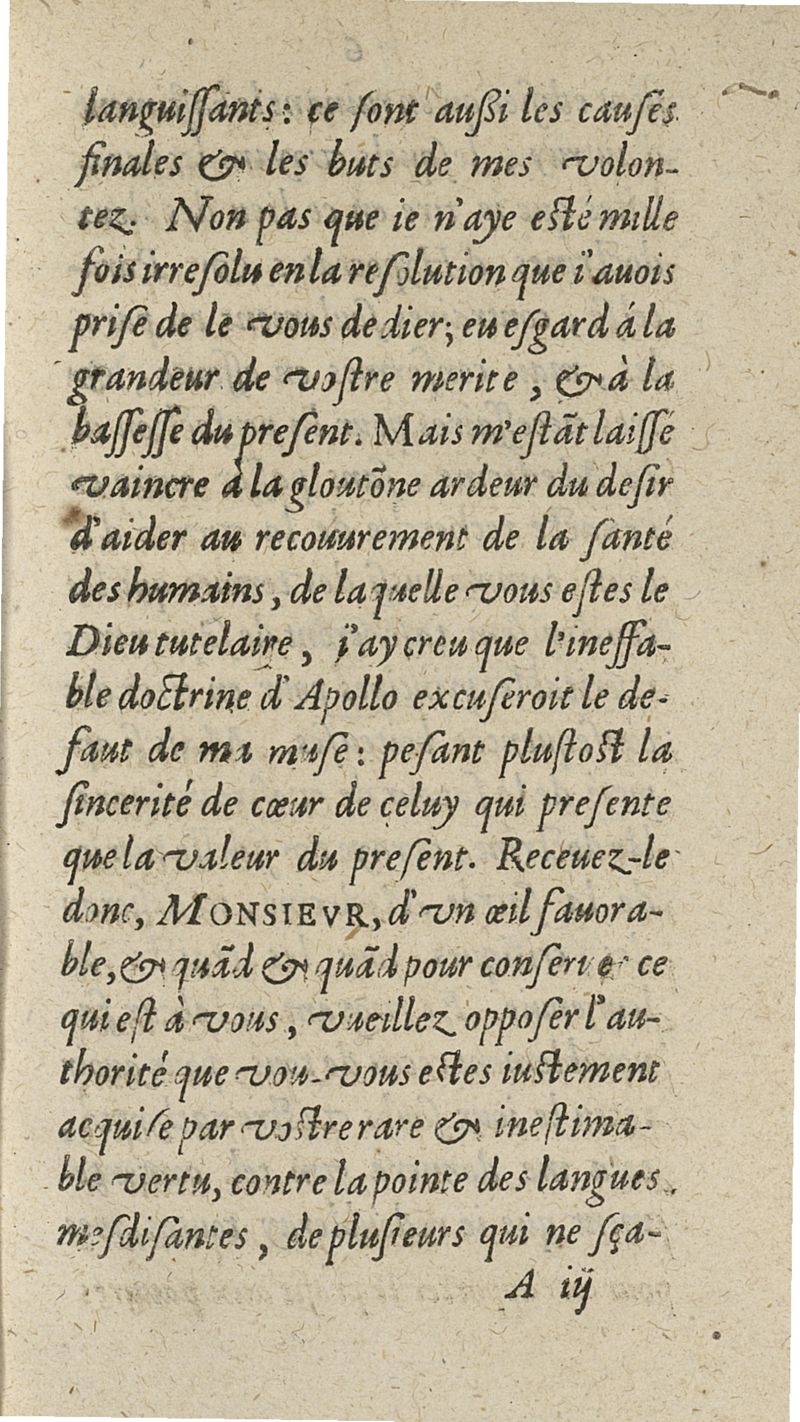 languiſſants: ce ſont auſſi les cauſes
finales & les buts de mes volon-
tez. Non pas que ie n'aye eſté mille
fois irreſolu en la reſolution que i'auois
priſe de le vous dedier; eu eſgard á la
grandeur de voſtre merite, & à la
baſſeſſe du preſent. Mais m'eſtāt laiſſé
vaincre à la gloutōne ardeur du deſir
d'aider au recouurement de la ſanté
des humains, de laquelle vous eſtes le
Dieu tutelaire, i'ay creu que l'ineffa-
ble doctrine d'Apollo excuſeroit le de-
faut de ma muſe: peſant pluſtoſt la
ſincerité de cœur de celuy qui preſente
que la valeur du preſent. Receuez-le
donc, MONSIEVR, d'vn œil fauora-
ble, & quād & quād pour conſeruer ce
qui eſt à vous, vueillez oppoſer l'au-
thorité que vou-vous eſtes iuſtement
acquiſe par voſtre rare & ineſtima-
ble vertu, contre la pointe des langues
meſdiſantes, de pluſieurs qui ne ſça-
A iij